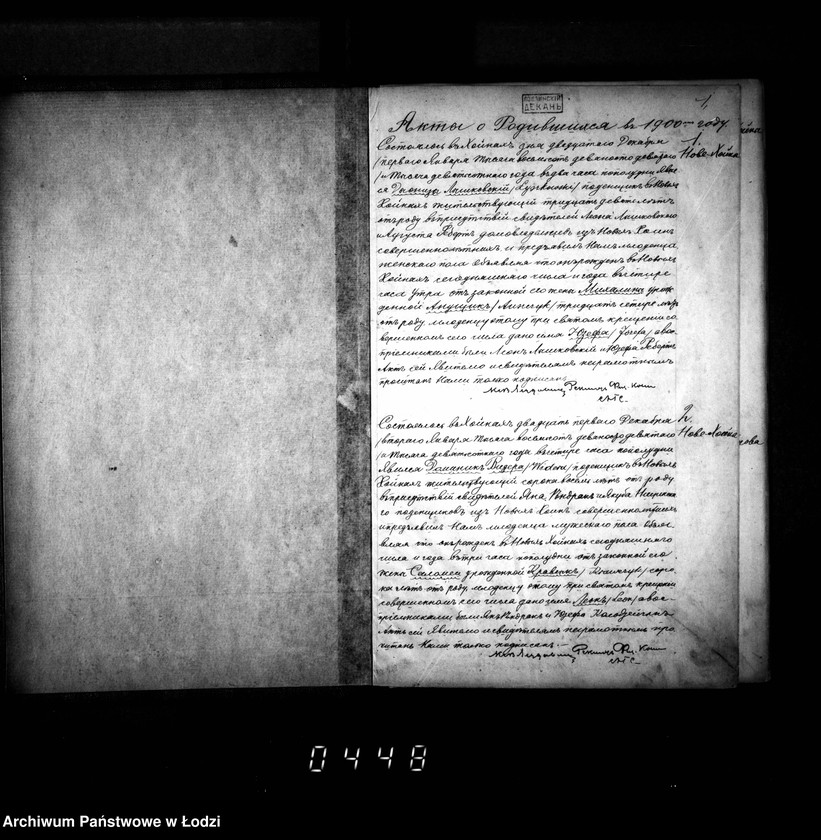 1.
ДЕКАНЪ
Акты о Родившихся въ 1900 году.
1.
Нове-Хойна
Состоялось въ Хойнахъ дня двадцатаго Декабря
/перваго Января/ тысяча восемьсотъ девяносто девятаго
/и тысяча девятисотнаго года въ два часа пополудни
Лишковскій поденщикъ въ Новыхъ
Хойнахъ жительствующій тридцать девять лѣтъ
отъ роду въ присутствіи свидѣтелей Леона Лишковскаго
и Августа домовладѣльцевъ изъ Новыхъ Хоенъ
совершеннолѣтнихъ и предъявилъ Намъ младенца
женскаго пола объявляя что онъ рожденъ въ Новыхъ
Хойнахъ сегодняшняго числа и года въ четыре
часа утра отъ законной его жены Михалины урож-
денной тридцать четыре лѣтъ
отъ роду младенцу этому при святомъ крещеніи со-
вершенномъ сего числа дано имя Юзефа /Józefa/ а вос-
пріемниками были Леонъ Лишковскій и Юзефа
Актъ сей явителю и свидѣтелямъ неграмотнымъ
прочитанъ Нами только подписанъ
2.
Нове-Хойна
Состоялось въ Хойнахъ двадцать перваго Декабря
/втораго Января/ тысяча восемьсотъ девяносто девятаго
/и тысяча девятисотнаго года въ четыре часа пополудни
Явился поденщикъ въ Новыхъ
Хойнахъ жительствующій сорокъ восемь лѣтъ отъ роду
въ присутствіи свидѣтелей Яна и Якуба
поденщиковъ изъ Новыхъ Хоенъ совершеннолѣтнихъ
и предъявилъ Намъ младенца мужескаго пола объя-
вляя что онъ рожденъ въ Новыхъ Хойнахъ сегодняшняго
числа и года въ три часа пополудни отъ законной его
жены Саломеи урожденной Кравчикъ соро-
ка лѣтъ отъ роду младенцу этому при святомъ крещеніи
совершенномъ сего числа дано имя Леонъ /Leon/ а вос-
пріемниками были Янъ и Юзефа
Актъ сей явителю и свидѣтелямъ неграмотнымъ про-
читанъ Нами только подписанъ
0448
Archiwum Państwowe w Łodzi